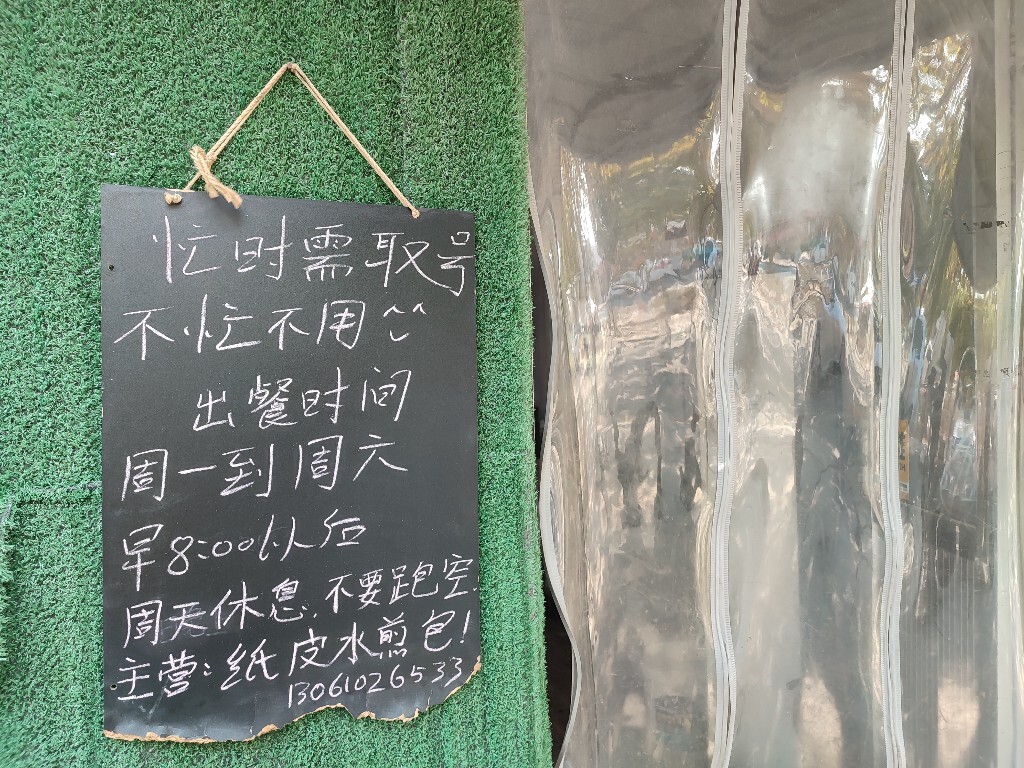 忙时需取号
不忙不用
出餐时间
周一到周六
早8:00以后
周天休息.不要跑空.
主营:纸皮水煎包!
13061026533